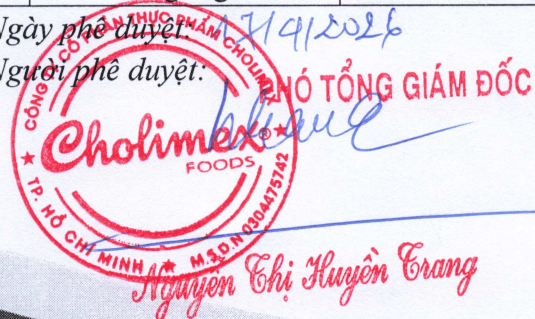 Ngày phê duyệt: 17/9/2026
Người phê duyệt:
PHÓ TỔNG GIÁM ĐỐC
CÔNG TY CỔ PHẦN THỰC PHẨM CHOLIMEX
Cholimex®
FOODS
★ TP. HỒ CHÍ MINH ★ M.S.D.N 0304475742 ★
Nguyễn Thị Huyền Trang